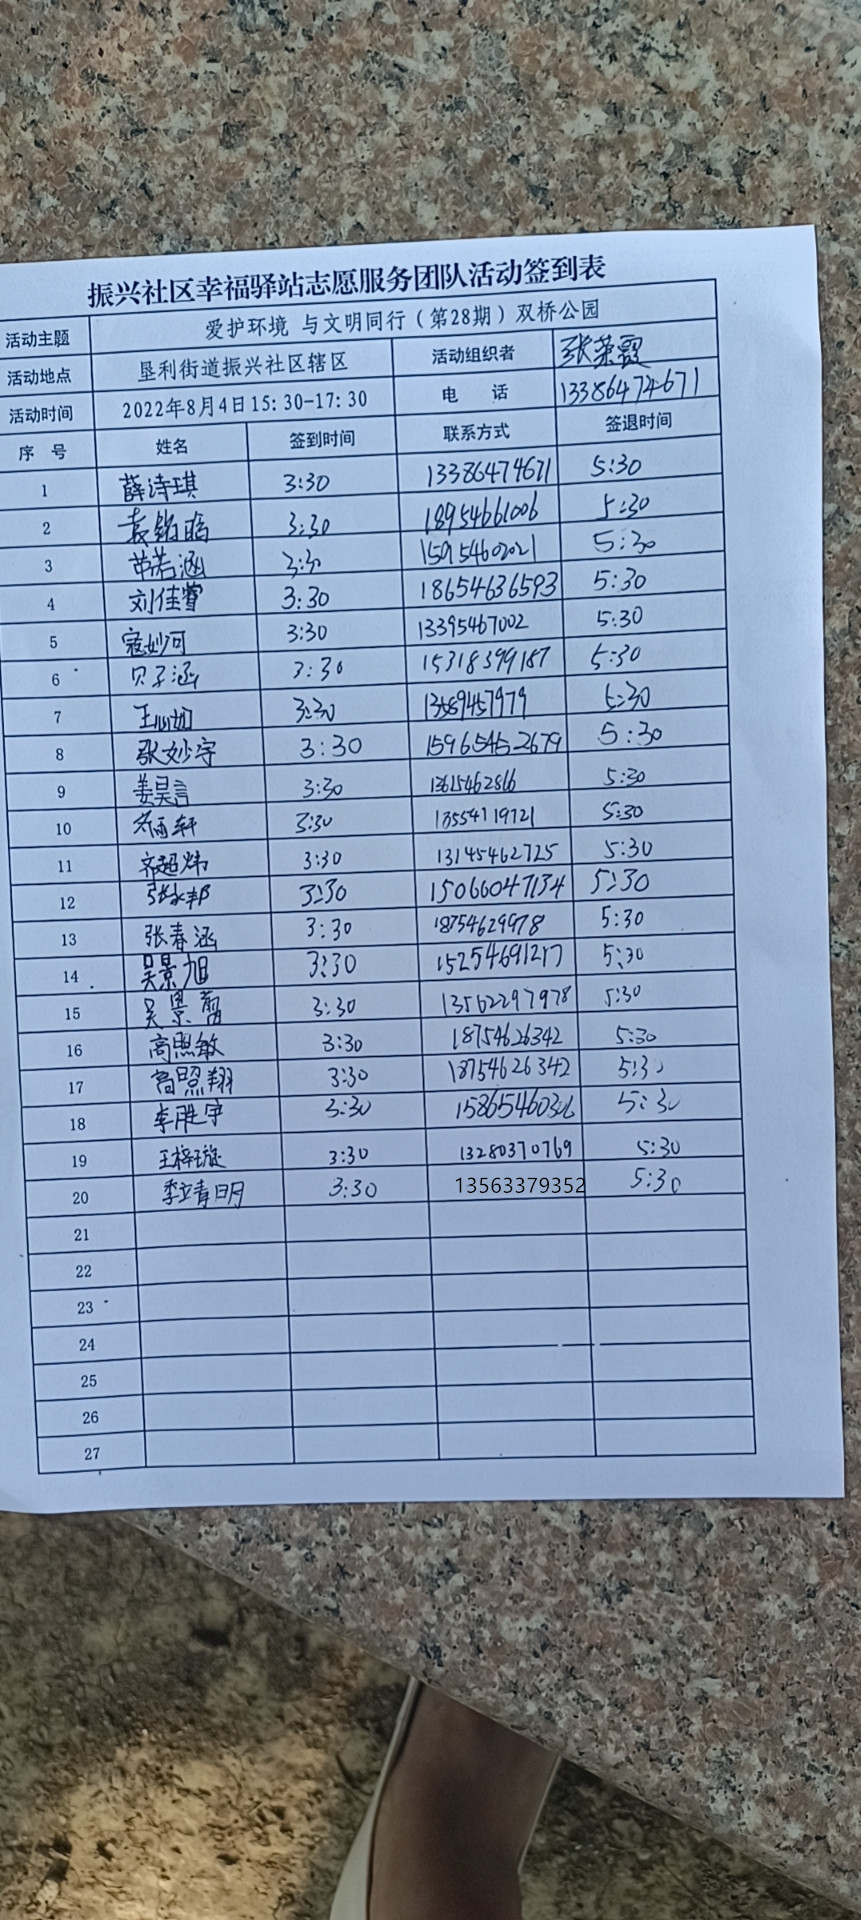 振兴社区幸福驿站志愿服务团队活动签到表
活动主题 爱护环境 与文明同行（第28期）双桥公园
活动地点 垦利街道振兴社区辖区 活动组织者 张荣霞
活动时间 2022年8月4日15:30-17:30 电 话 13386474671
序 号 姓名 签到时间 联系方式 签退时间
1 薛诗琪 3:30 13386474671 5:30
2 3:30 18954661006 5:30
3 若涵 3:30 15954602021 5:30
4 刘佳睿 3:30 18654636593 5:30
5 寇妙可 3:30 13395467002 5:30
6 贝子涵 3:30 15318399187 5:30
7 王心如 3:30 13589457979 5:30
8 张妙宇 3:30 15965452679 5:30
9 姜昊言 3:30 13615462866 5:30
10 3:30 13554119721 5:30
11 齐超炜 3:30 13145462725 5:30
12 张永邦 3:30 15066047134 5:30
13 张春涵 3:30 18754629978 5:30
14 吴景旭 3:30 15254691217 5:30
15 吴景 3:30 13562297978 5:30
16 高照敏 3:30 18754626342 5:30
17 高照翔 3:30 18754626342 5:30
18 李胜宇 3:30 15865460306 5:30
19 王梓璇 3:30 13280370769 5:30
20 李靖明 3:30 13563379352 5:30
21
22
23
24
25
26
27